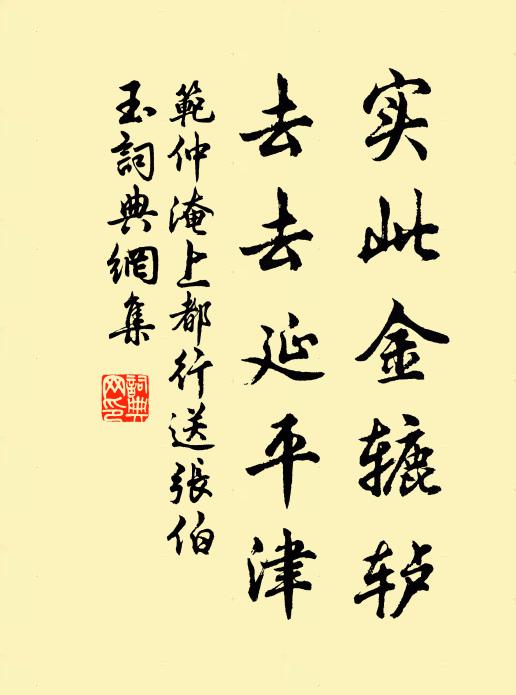 实此金辘轳
去去延平津
範仲淹上都行送張伯
玉詞典網集
詞典网印